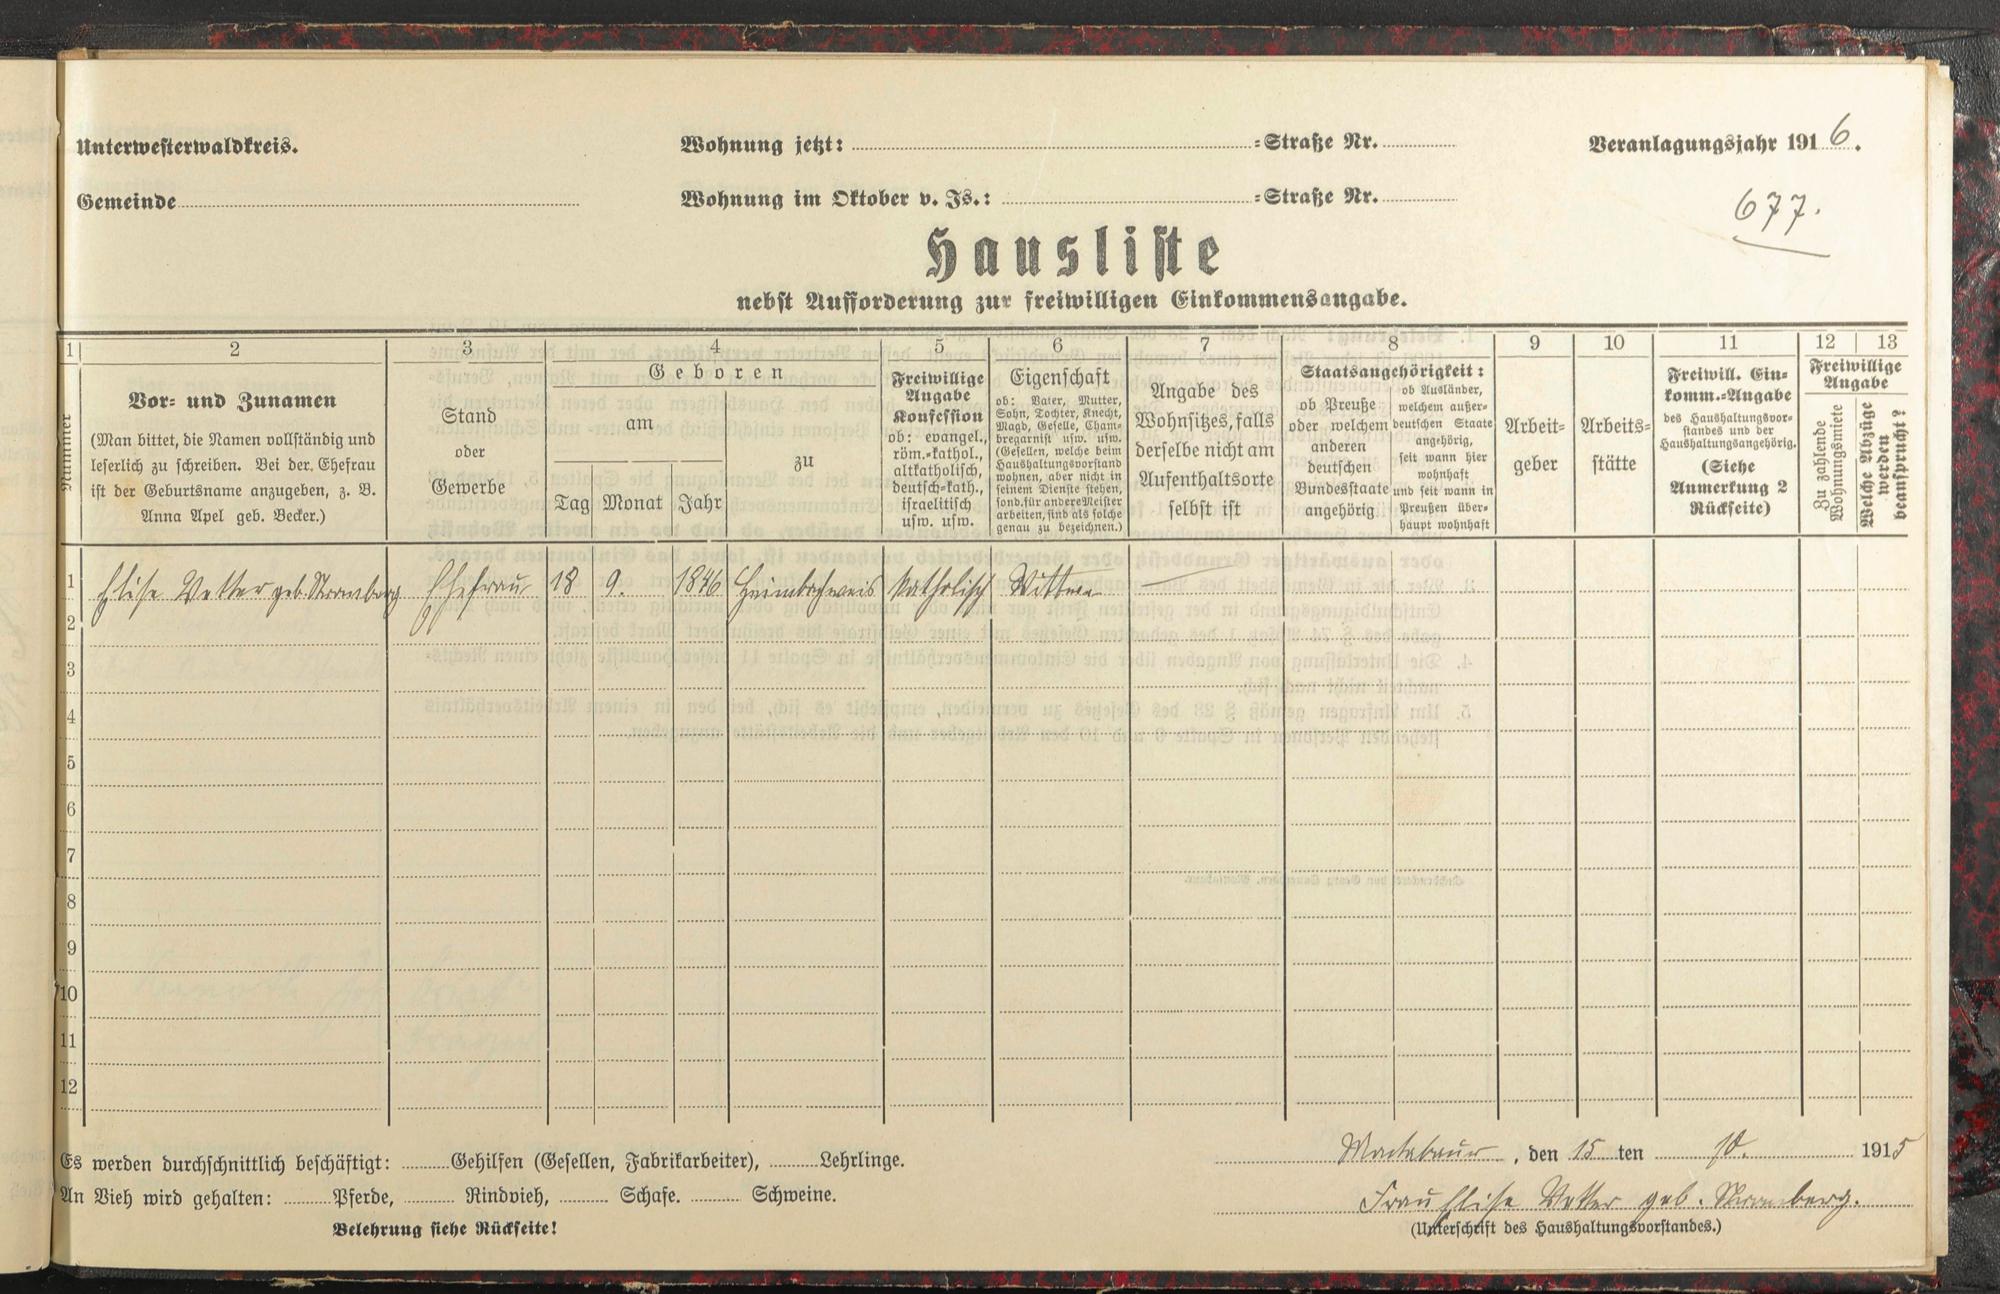 Unterwesterwaldkreis.
Wohnung jetzt: =Straße Nr.
Veranlagungsjahr 1916.
Gemeinde
Wohnung im Oktober v. Js.: =Straße Nr.
677.
Hausliste
nebst Aufforderung zur freiwilligen Einkommensangabe.
1 2 3 4 5 6 7 8 9 10 11 12 13
Nummer
Vor= und Zunamen
(Man bittet, die Namen vollständig und
leserlich zu schreiben. Bei der Ehefrau
ist der Geburtsname anzugeben, z. B.
Anna Apel geb. Becker.)
Stand
oder
Gewerbe
Geboren
am
zu
Tag Monat Jahr
Freiwillige
Angabe
Konfession
ob: evangel.,
röm.=kathol.,
altkatholisch,
deutsch=kath.,
israelitisch
usw. usw.
Eigenschaft
ob: Vater, Mutter,
Sohn, Tochter, Knecht,
Magd, Geselle, Cham=
bregarnist usw. usw.
(Gesellen, welche beim
Haushaltungsvorstand
wohnen, aber nicht in
seinem Dienste stehen,
sond. für andere Meister
arbeiten, sind als solche
genau zu bezeichnen.)
Angabe des
Wohnsitzes, falls
derselbe nicht am
Aufenthaltsorte
selbst ist
Staatsangehörigkeit:
ob Preuße
oder welchem
anderen
deutschen
Bundesstaate
angehörig
ob Ausländer,
welchem außer=
deutschen Staate
angehörig,
seit wann hier
wohnhaft
und seit wann in
Preußen über=
haupt wohnhaft
Arbeit=
geber
Arbeits=
stätte
Freiwill. Ein=
komm.=Angabe
des Haushaltungsvor=
standes und der
Haushaltungsangehörig.
(Siehe
Anmerkung 2
Rückseite)
Freiwillige
Angabe
Zu zahlende
Wohnungsmiete
Welche Abzüge
werden
beansprucht:
1 Elise Vetter geb. Stromberg Ehefrau 18 9. 1846 Heimbachweis katholisch Wittwe —
2
3
4
5
6
7
8
9
10
11
12
Es werden durchschnittlich beschäftigt: Gehilfen (Gesellen, Fabrikarbeiter), Lehrlinge.
Montabaur, den 15 ten 10. 1915
An Vieh wird gehalten: Pferde, Rindvieh, Schafe. Schweine.
Frau Elise Vetter geb. Stromberg.
Belehrung siehe Rückseite!
(Unterschrift des Haushaltungsvorstandes.)